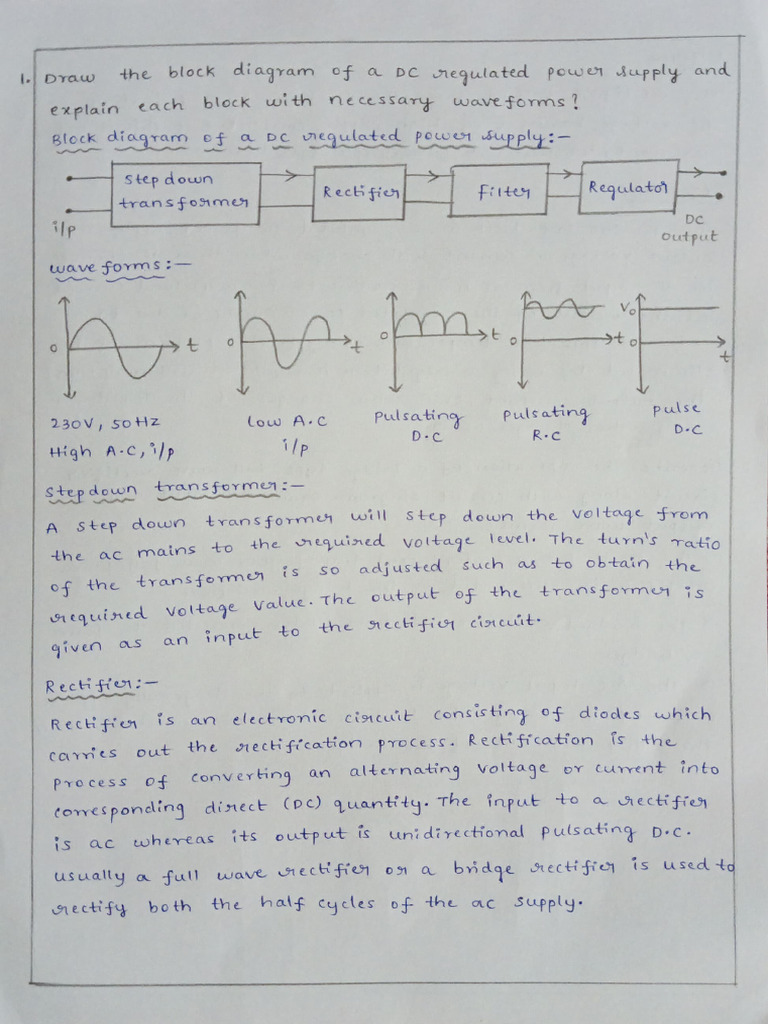 1. Draw the block diagram of a DC regulated power supply and
explain each block with necessary waveforms?
Block diagram of a DC regulated power supply:-
Step down
transformer
Rectifier
filter
Regulator
i/p
DC
output
wave forms:-
0 t
0 t
0 t
0 t
Vo
0
t
230V, 50Hz
High A.C, i/p
Low A.C
i/p
Pulsating
D.C
Pulsating
R.C
Pulse
D.C
Step down transformer:-
A step down transformer will step down the voltage from
the ac mains to the required voltage level. The turn's ratio
of the transformer is so adjusted such as to obtain the
required voltage value. The output of the transformer is
given as an input to the rectifier circuit.
Rectifier:-
Rectifier is an electronic circuit consisting of diodes which
carries out the rectification process. Rectification is the
process of converting an alternating voltage or current into
corresponding direct (DC) quantity. The input to a rectifier
is ac whereas its output is unidirectional pulsating D.C.
usually a full wave rectifier or a bridge rectifier is used to
rectify both the half cycles of the ac supply.